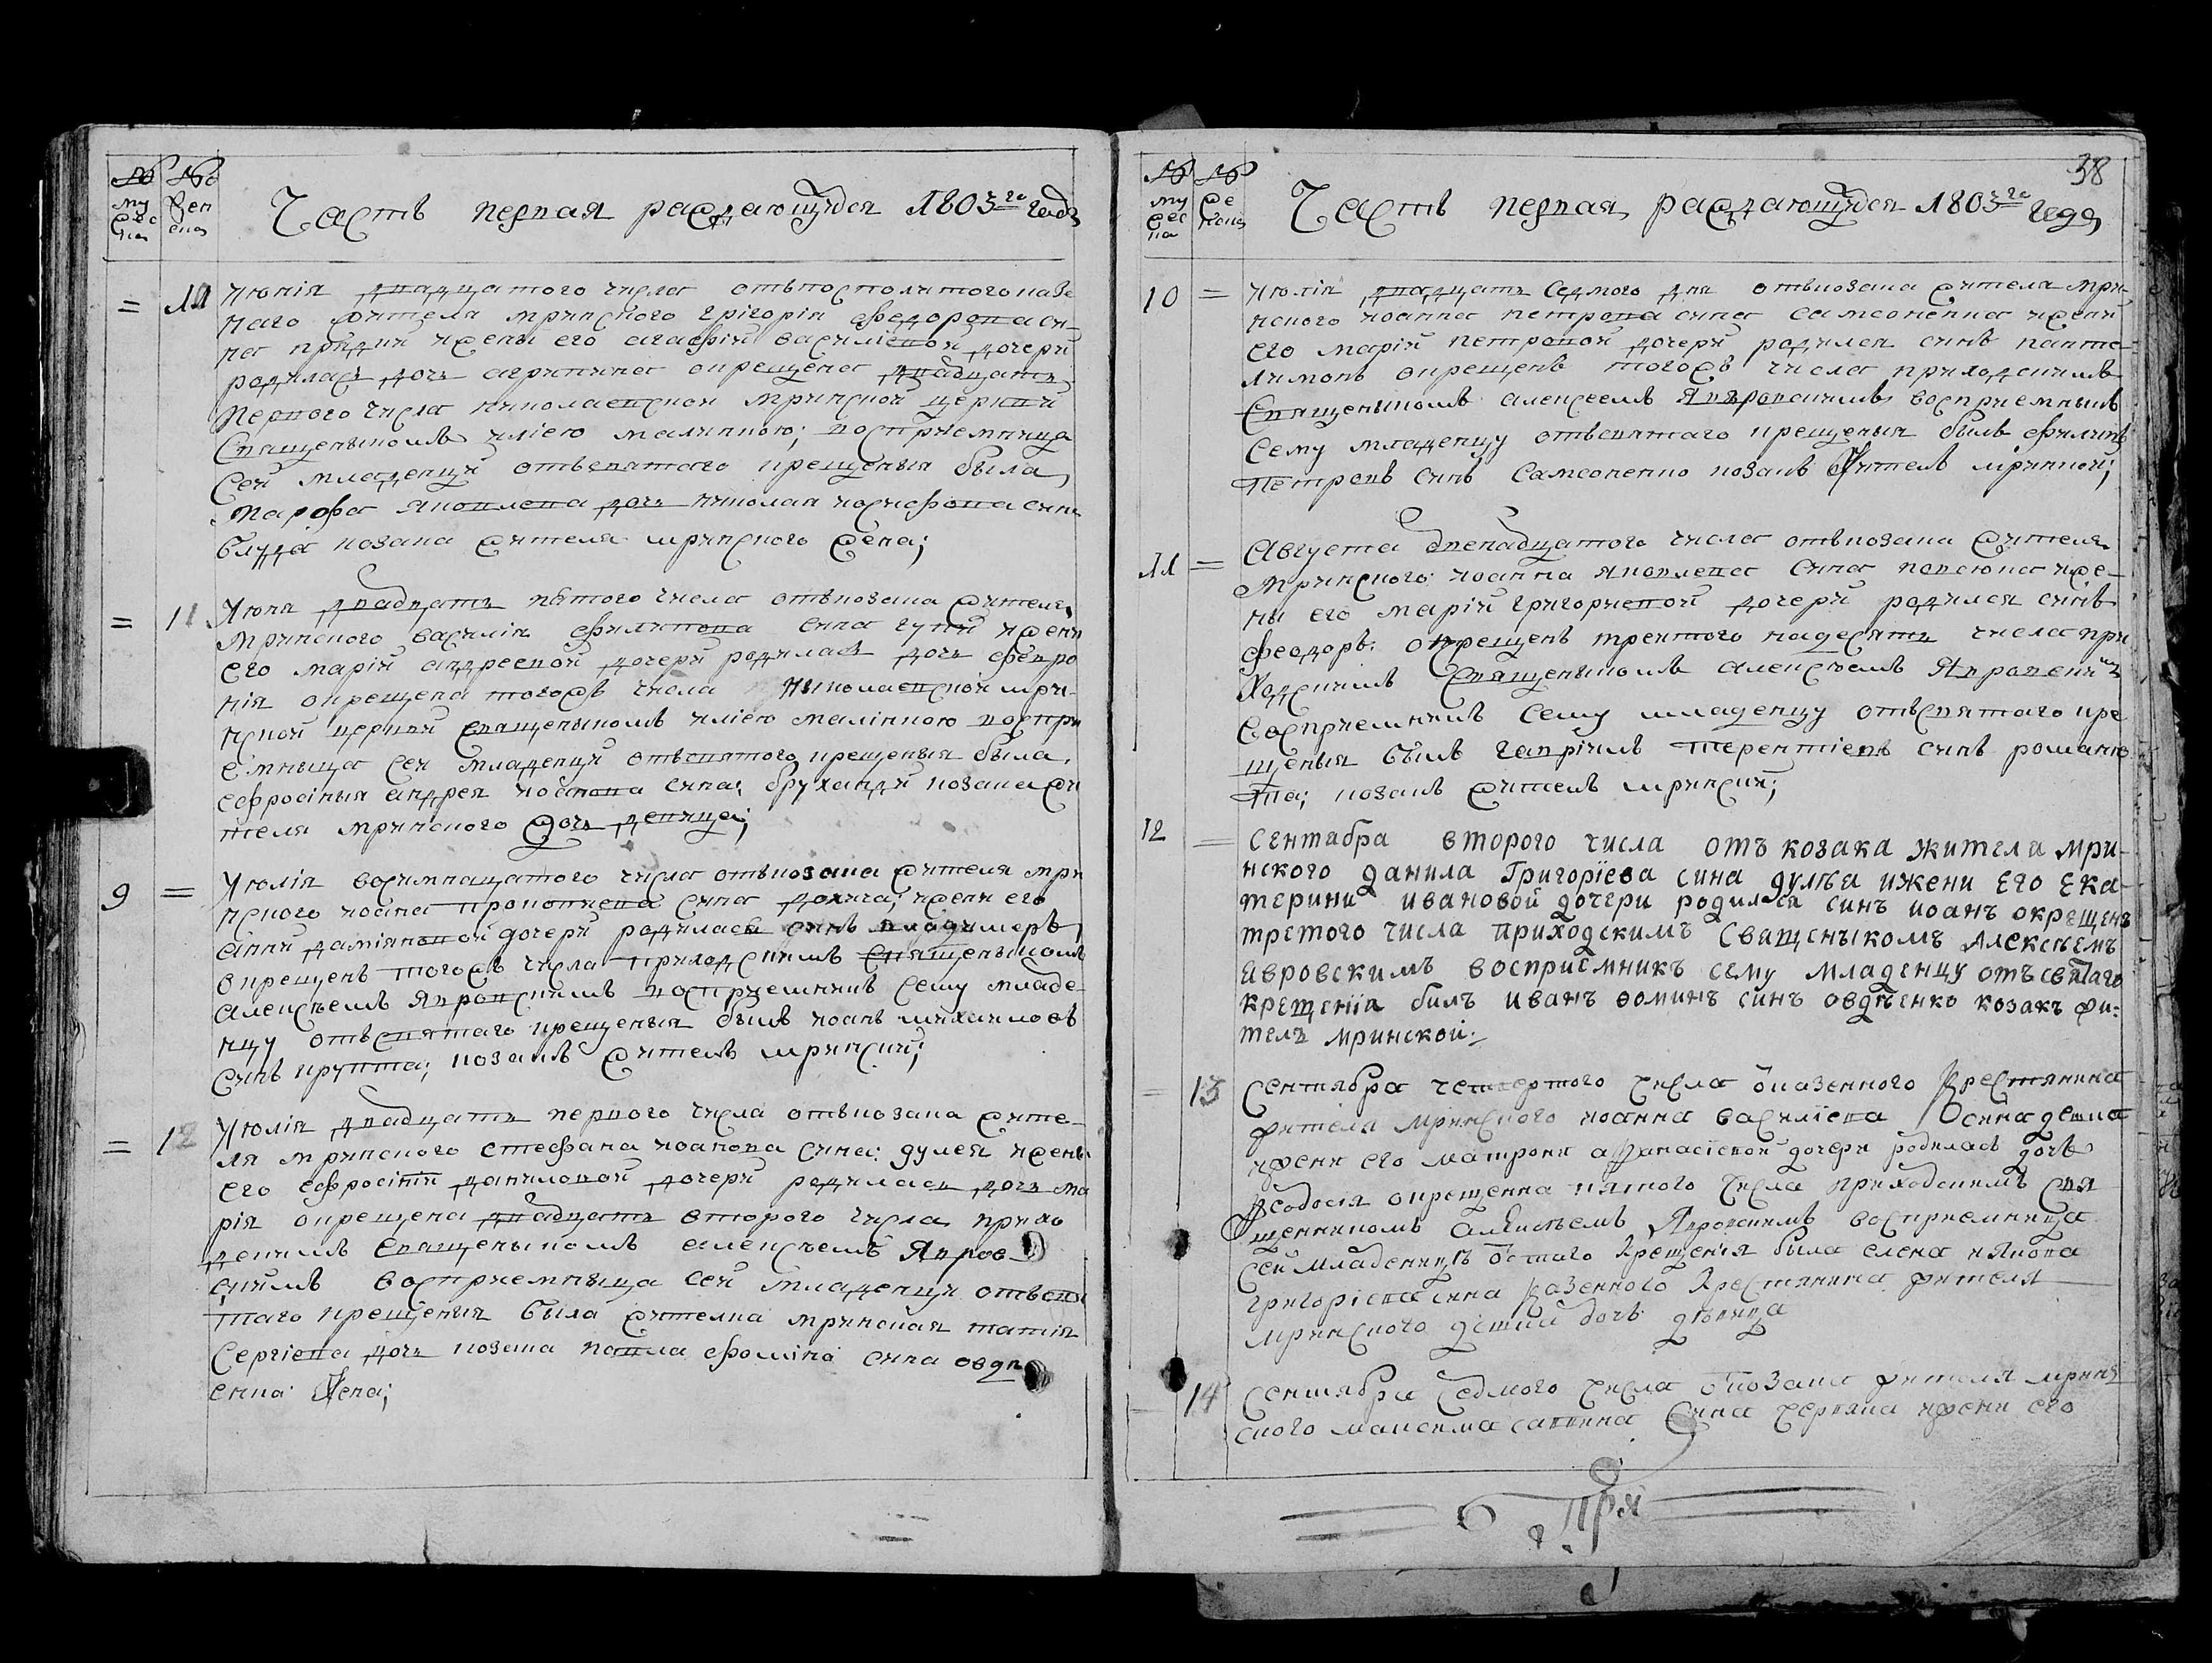 № №
му жес ка
жен ска
Часть первая раждающихся 1803го года
= 10 Июнія двадцатого числа отъпосполитого казе
ного жителя мринского григорія федорова си
на жени его агафіи василіевой дочери
родилась дочь агрипина окрещена двадцать
первого числа николаевской мринской церкви
священыкомъ иліею малинкою; восприемница
сей младенци отъсвятаго крещеныя была
марфа яковлева дочь николая иосифова сина
блуда козака жителя мринского жена;
= 11 Июня двадцать пятого числа отъкозака жителя
мринского василія филипова сина гупи жени
его маріи андреевой дочери родилась дочь февро
нія окрещена тогожъ числа николаевской мрин
ской церкви священыкомъ иліею малінкою воспри
емныца сей младенци отъсвятого крещеныя была
ефросіныя андрея иоанова сина; козака жи
теля мринского дочь девица;
9 = Июлія восимнацатого числа отъкозака жителя мри
нского иоана прокопиева сина жени его
анни даміяновой дочери родилася синъ владимеръ
окрещенъ тогожъ числа приходскимъ священыкомъ
алексѣемъ явровскимъ восприемникъ сему младе
нцу отъсвятаго крещеныя былъ иоанъ михаиловъ
синъ крупка; козакъ житель мринский;
= 12 Июлія двадцать первого числа отъкозака жите
ля мринского стефана иоанова сина: дулея жени
его ефросініи даниловой дочери родилась дочь ма
рія окрещена двадцать второго числа прихо
дскимъ священыкомъ алексѣемъ явров
скимъ восприемныца сей младенци отъсвя
таго крещеныя была жителка мринская татія
сергіева дочь козака павла фоміна сина овдѣ
енка жена;
38
№ №
му жес ка
же нска
Часть первая раждающихся 1803го года
10 = Июлія двадцать седмого дня отъкозака жителя мри
нского иоанна петрова сина самсоненка жени
его маріи петровой дочери родился синъ панте
лимонъ окрещенъ тогожъ числа приходскимъ
священыкомъ алексеемъ явровскимъ восприемныкъ
сему младенцу отъсвятаго крещеныя былъ филипъ
петровъ синъ самсоненко козакъ житель мринский;
11 = Августа двенадцатого числа отъкозака жителя
мринского иоанна яковлева сина жe
ны его маріи григориевой дочери родился синъ
феодоръ: окрещенъ третого надесять числа при
ходскимъ священыкомъ алексѣемъ явровскимъ
восприемникъ сему младенцу отъсвятаго кре
щеныя былъ гавріилъ терентіевъ синъ романю
та; козакъ житель мринский;
12 = сентабра второго числа отъ козака жителя мри-
нского данила Григоріева сина дулѣа ижени его ека-
терини ивановой дочери родился синъ иоанъ окрещенъ
третого числа приходскимъ сващеныкомъ алексѣемъ
явровскимъ восприемникъ сему младенцу отъ святаго
крещеніа билъ иванъ фоминъ синъ овдѣенко козакъ жи:
телъ мринской:
= 13 сентября четвертого числа казенного крестянина
жителя мринского иоанна василіева сина
ижени его матрони афанасіевой дочери родилась дочь
феодосія окрещенна пятого числа приходскимъ свя
щенникомъ алексѣемъ явровскимъ восприемница
сей младеницѣ крещенія была елена иякова
григоріева сина казенного крестянина жителя
мринского дочь дѣвица
14 сентября седмого числа козака жителя мрин
ского максима савина сина червяка ижени его